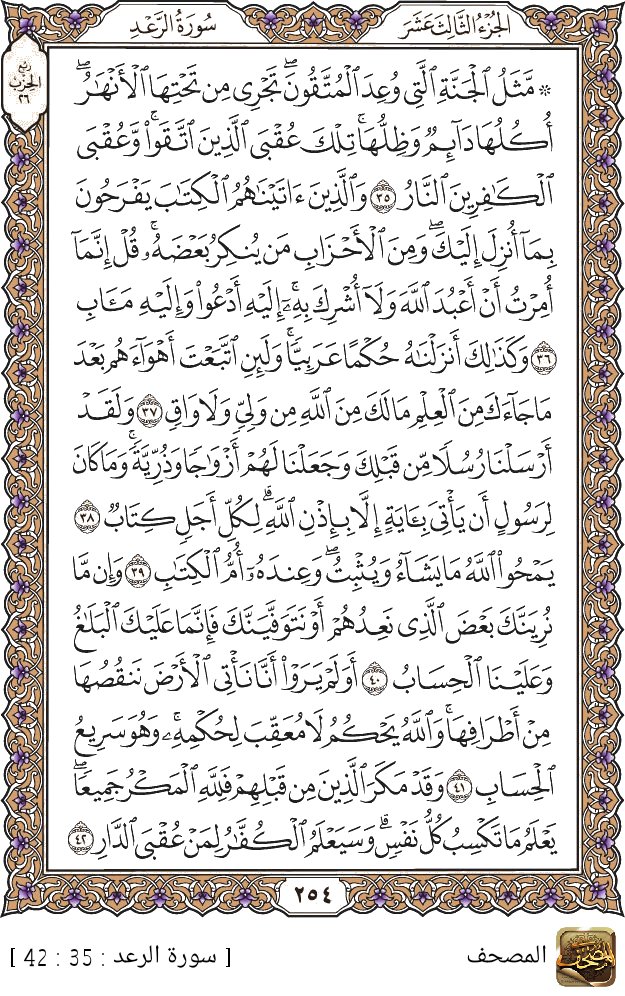 سُورَةُ الرَّعْدِ
الجُزْءُ الثَّالِثَ عَشَرَ
رُبْعُ
الحِزْبِ
٢٦
۞ مَّثَلُ ٱلْجَنَّةِ ٱلَّتِى وُعِدَ ٱلْمُتَّقُونَۖ تَجْرِى مِن تَحْتِهَا ٱلْأَنْهَٰرُۖ
أُكُلُهَا دَآئِمٌ وَظِلُّهَاۚ تِلْكَ عُقْبَى ٱلَّذِينَ ٱتَّقَوا۟ۚ وَّعُقْبَى
ٱلْكَٰفِرِينَ ٱلنَّارُ ٣٥ وَٱلَّذِينَ ءَاتَيْنَٰهُمُ ٱلْكِتَٰبَ يَفْرَحُونَ
بِمَآ أُنزِلَ إِلَيْكَۖ وَمِنَ ٱلْأَحْزَابِ مَن يُنكِرُ بَعْضَهُۥۚ قُلْ إِنَّمَآ
أُمِرْتُ أَنْ أَعْبُدَ ٱللَّهَ وَلَآ أُشْرِكَ بِهِۦٓۚ إِلَيْهِ أَدْعُوا۟ وَإِلَيْهِ مَـَٔابِ
٣٦ وَكَذَٰلِكَ أَنزَلْنَٰهُ حُكْمًا عَرَبِيًّاۚ وَلَئِنِ ٱتَّبَعْتَ أَهْوَآءَهُم بَعْدَ
مَا جَآءَكَ مِنَ ٱلْعِلْمِ مَا لَكَ مِنَ ٱللَّهِ مِن وَلِىٍّ وَلَا وَاقٍ ٣٧ وَلَقَدْ
أَرْسَلْنَا رُسُلًا مِّن قَبْلِكَ وَجَعَلْنَا لَهُمْ أَزْوَٰجًا وَذُرِّيَّةًۚ وَمَا كَانَ
لِرَسُولٍ أَن يَأْتِىَ بِـَٔايَةٍ إِلَّا بِإِذْنِ ٱللَّهِۗ لِكُلِّ أَجَلٍ كِتَابٌ ٣٨
يَمْحُوا۟ ٱللَّهُ مَا يَشَآءُ وَيُثْبِتُۖ وَعِندَهُۥٓ أُمُّ ٱلْكِتَٰبِ ٣٩ وَإِن مَّا
نُرِيَنَّكَ بَعْضَ ٱلَّذِى نَعِدُهُمْ أَوْ نَتَوَفَّيَنَّكَ فَإِنَّمَا عَلَيْكَ ٱلْبَلَٰغُ
وَعَلَيْنَا ٱلْحِسَابُ ٤٠ أَوَلَمْ يَرَوْا۟ أَنَّا نَأْتِى ٱلْأَرْضَ نَنقُصُهَا
مِنْ أَطْرَافِهَاۚ وَٱللَّهُ يَحْكُمُ لَا مُعَقِّبَ لِحُكْمِهِۦۚ وَهُوَ سَرِيعُ
ٱلْحِسَابِ ٤١ وَقَدْ مَكَرَ ٱلَّذِينَ مِن قَبْلِهِمْ فَلِلَّهِ ٱلْمَكْرُ جَمِيعًاۖ
يَعْلَمُ مَا تَكْسِبُ كُلُّ نَفْسٍۗ وَسَيَعْلَمُ ٱلْكُفَّٰرُ لِمَنْ عُقْبَى ٱلدَّارِ ٤٢
٢٥٤
المصحف
[ سورة الرعد : 35 : 42 ]